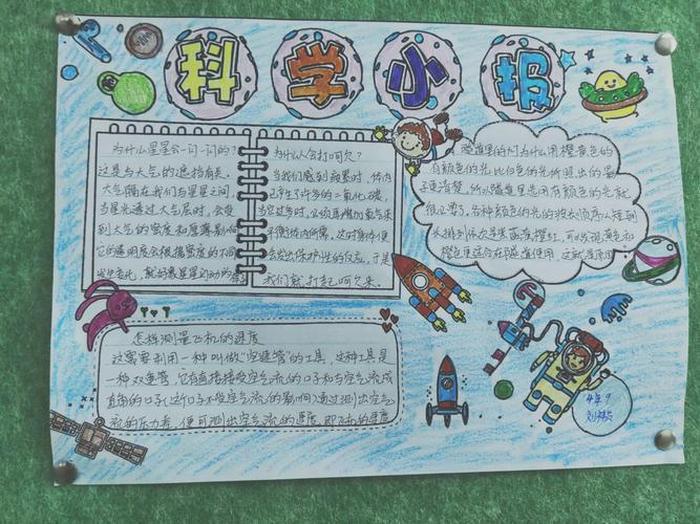 科学小报
为什么星星会一闪一闪的?
这是与大气的遮挡有关。
大气隔在我们与星星之间,
当星光通过大气层时,会受
到大气的密度和厚薄影响
它的透明度会根据密度的不同
为什么人会打呵欠?
当我们感到疲累时,体内
已产生了许多的二氧化碳,
当它过多时,必须再增加氧气来
平衡体内所需。这时身体便
会发出保护性的反应,于是
我们就打起呵欠来。
隧道里的灯为什么用橙黄色的
有颜色的光比白色的光所照出的影
子更清楚,所以隧道里选用有颜色的光就
很必要了。各种颜色的光的波长顺序从短到
怎样测量飞机的速度
这需要利用一种叫做“空速管”的工具,这种工具是
一种双重管,它有直接接受空气流的口子和与空气流成
直角的口子(这个口子不受空气流的影响)通过测出空气
流的压力差,便可测出空气流的速度,即飞机的速度